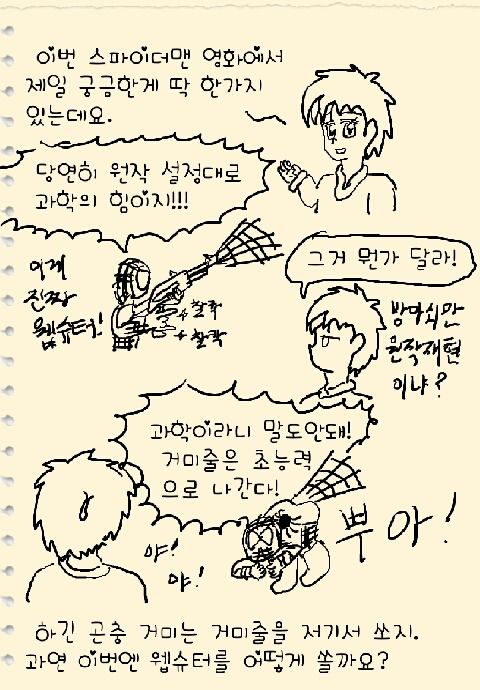 이번 스파이더맨 영화에서
제일 궁금한게 딱 한가지
있는데요.
당연히 원작 설정대로
과학의 힘이지!!!
이게
진짜
웹슈터!
찰칵
찰칵
그거 뭔가 달라!
방아쇠만
원작재현
이냐?
과학이라니 말도안돼!
거미줄은 초능력
으로 나간다!
뿌아!
야!
야!
하긴 곤충 거미는 거미줄을 저기서 쏘지.
과연 이번엔 웹슈터를 어떻게 쏠까요?